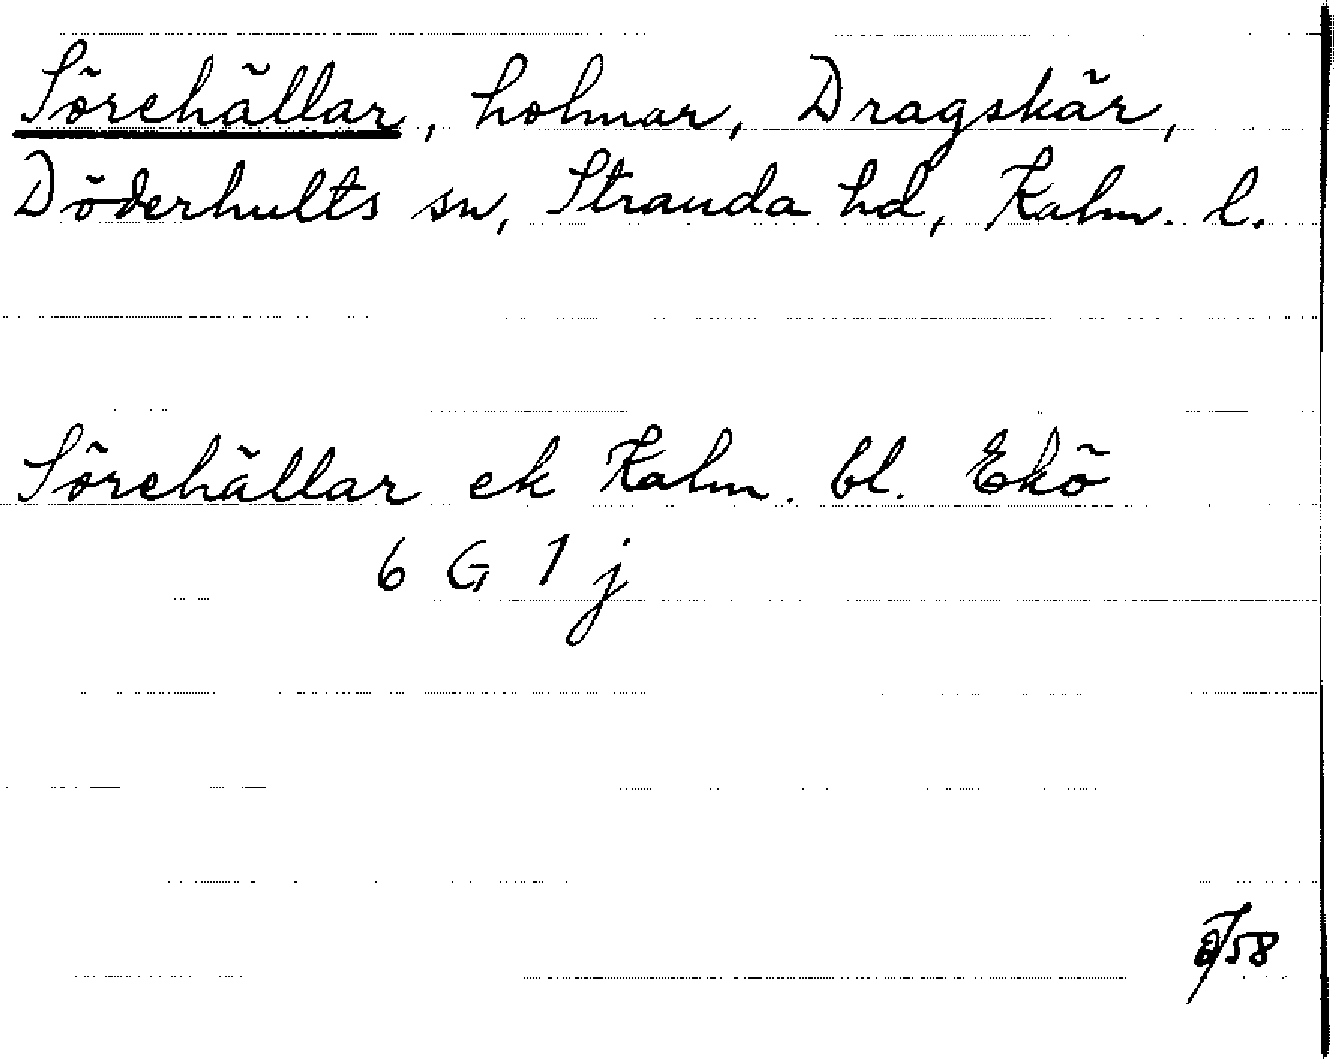 Sörehällar, holmar, Dragskär,
Döderhults sn, Stranda hd, Kalm. l.
Sörehällar ek Kalm. bl. Ekö
6 G 1 j
58